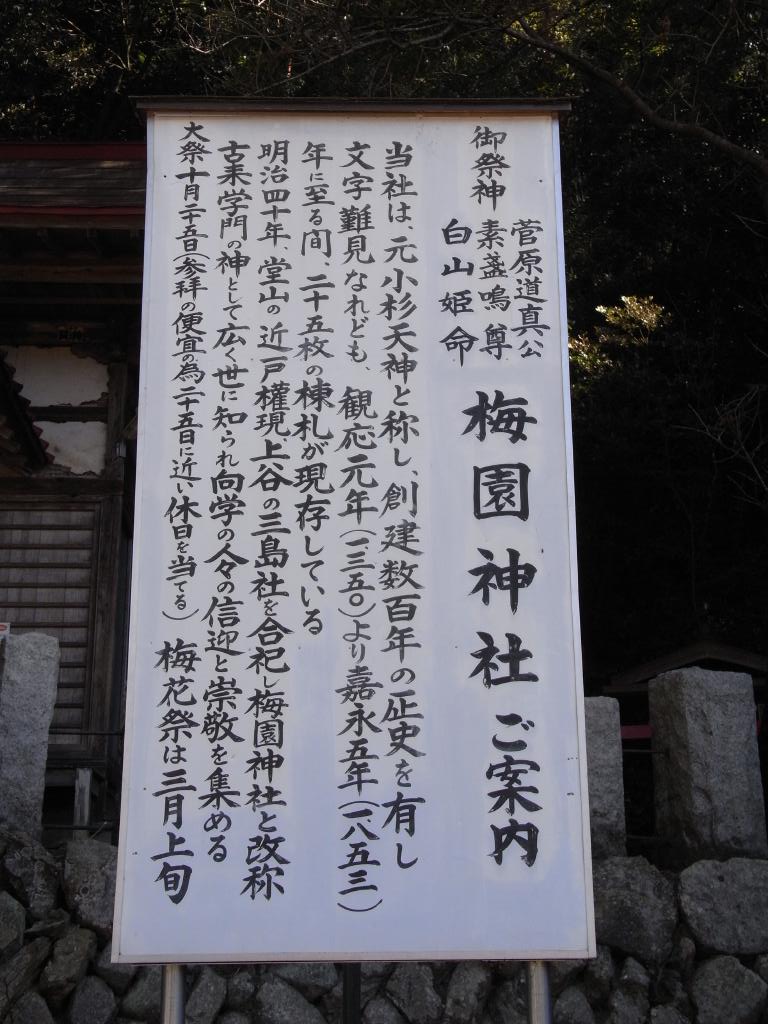 梅園神社ご案内
御祭神
菅原道真公
素盞鳴尊
白山姫命
当社は、元小杉天神と称し、創建数百年の歴史を有し
文字難見なれども、観応元年(一三五〇)より嘉永五年(一八五三)
年に至る間、二十五枚の棟札が現存している
明治四十年、堂山の近戸権現、上谷の三島社を合祀し梅園神社と改称
古来学門の神として広く世に知られ向学の人々の信迎と崇敬を集める
大祭十月二十五日(参拜の便宜の為二十五日に近い休日を当てる) 梅花祭は三月上旬